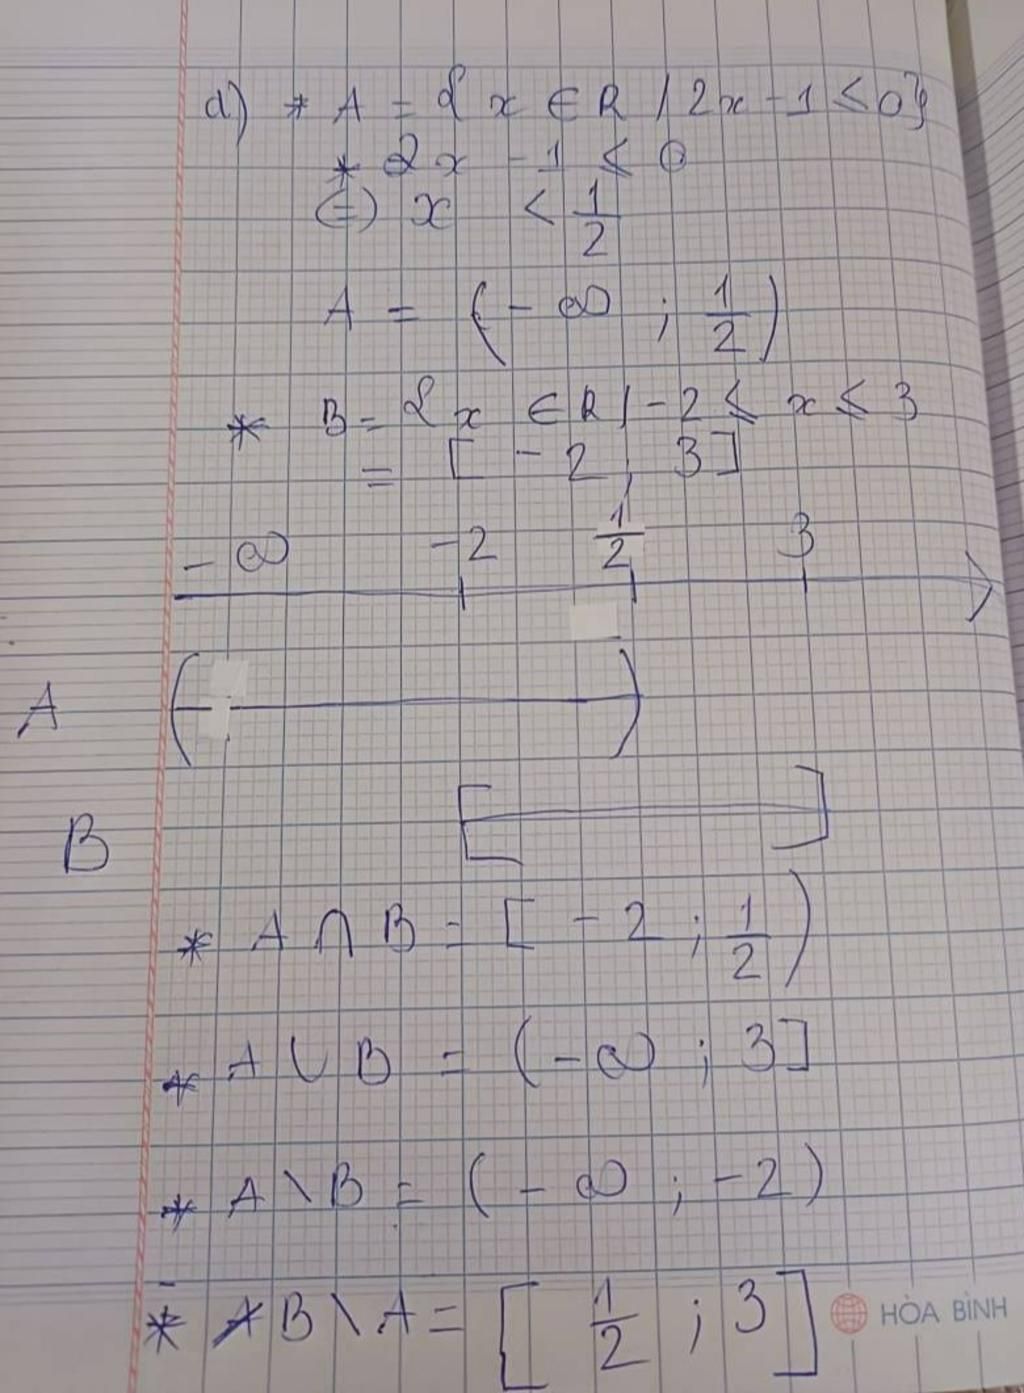 d) * A = { x ∈ R / 2x - 1 ≤ 0}
* 2x - 1 ≤ 0
(=) x < 1/2
A = (- ∞ ; 1/2)
* B = { x ∈ R / -2 ≤ x ≤ 3
= [ -2 ; 3 ]
- ∞ -2 1/2 3
A ( )
B [ ]
* A ∩ B = [ -2 ; 1/2 )
* A ∪ B = (- ∞ ; 3 ]
* A \ B = (- ∞ ; -2 )
* B \ A = [ 1/2 ; 3 ]
HÒA BÌNH